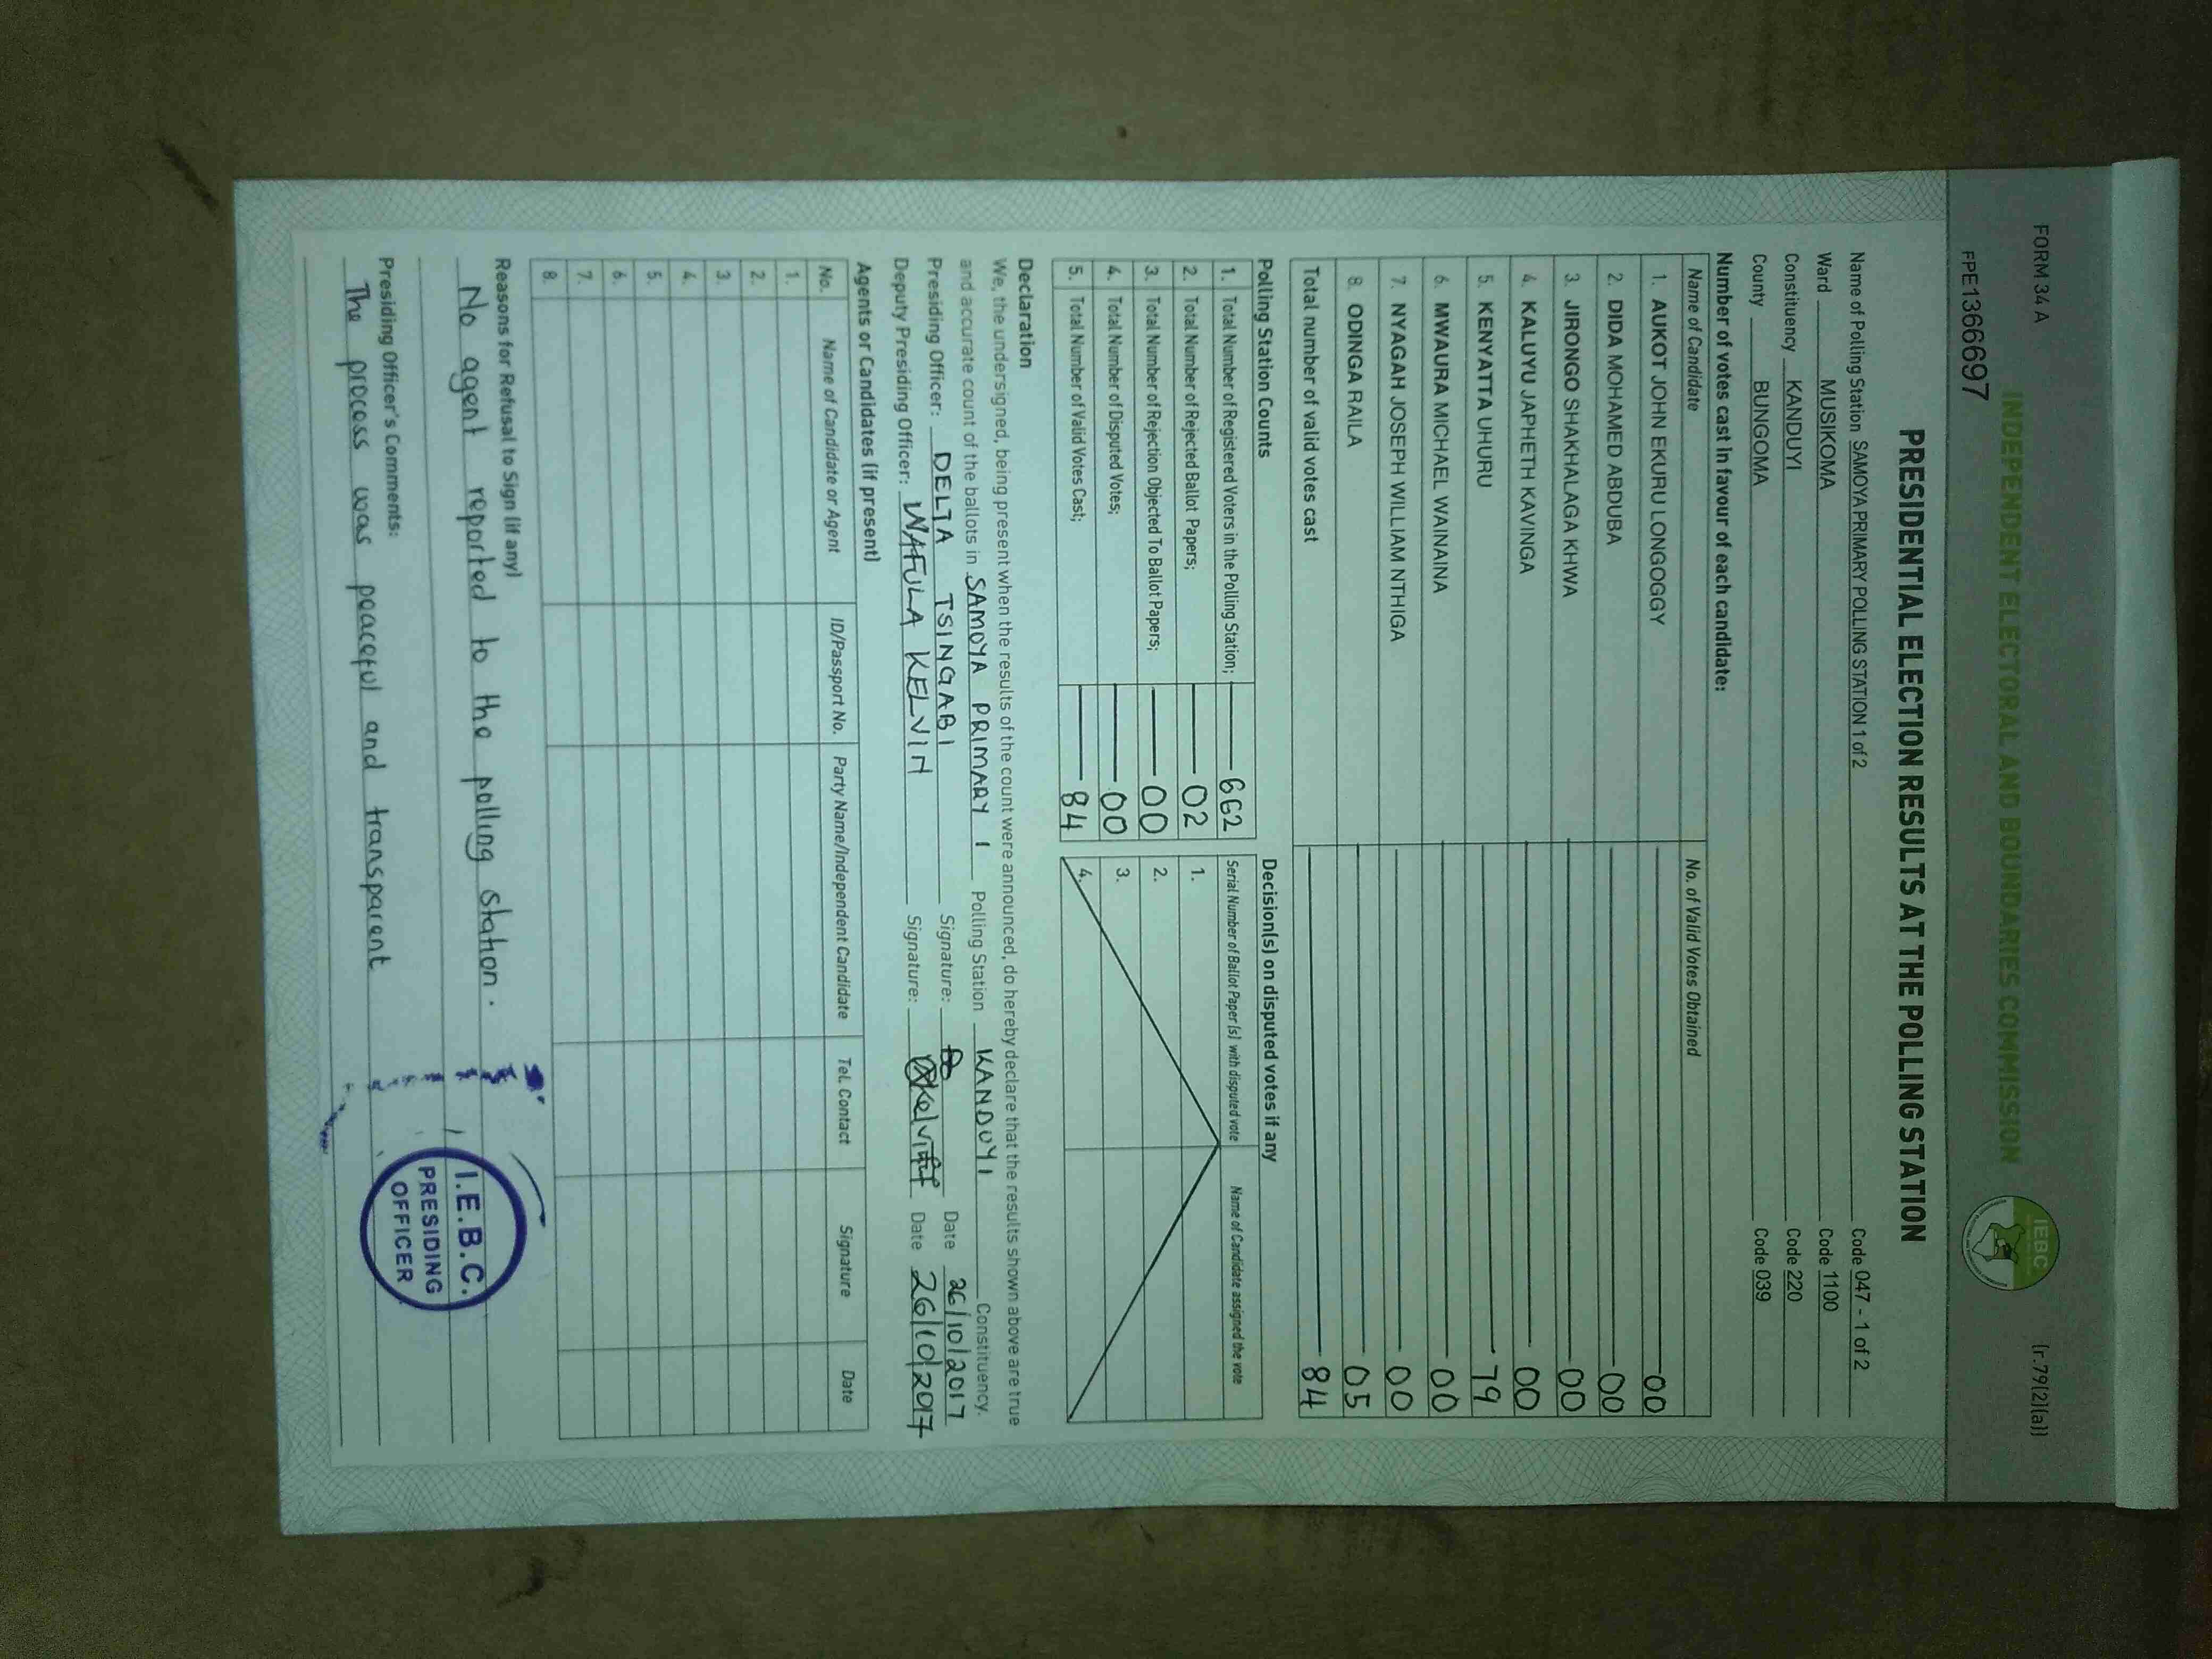 FORM 34 A
(r.79(2)(a))
INDEPENDENT ELECTORAL AND BOUNDARIES COMMISSION
IEBC
FPE1366697
PRESIDENTIAL ELECTION RESULTS AT THE POLLING STATION
Name of Polling Station SAMOYA PRIMARY POLLING STATION 1 of 2 Code 047 - 1 of 2
Ward MUSIKOMA Code 1100
Constituency KANDUYI Code 220
County BUNGOMA Code 039
Number of votes cast in favour of each candidate:
Name of Candidate No. of Valid Votes Obtained
1. AUKOT JOHN EKURU LONGOGGY 00
2. DIDA MOHAMED ABDUBA 00
3. JIRONGO SHAKHALAGA KHWA 00
4. KALUYU JAPHETH KAVINGA 00
5. KENYATTA UHURU 79
6. MWAURA MICHAEL WAINAINA 00
7. NYAGAH JOSEPH WILLIAM NTHIGA 00
8. ODINGA RAILA 05
Total number of valid votes cast 84
Polling Station Counts
1. Total Number of Registered Voters in the Polling Station; 662
2. Total Number of Rejected Ballot Papers; 02
3. Total Number of Rejection Objected To Ballot Papers; 00
4. Total Number of Disputed Votes; 00
5. Total Number of Valid Votes Cast; 84
Decision(s) on disputed votes if any
Serial Number of Ballot Paper (s) with disputed vote Name of Candidate assigned the vote
1.
2.
3.
4.
Declaration
We, the undersigned, being present when the results of the count were announced, do hereby declare that the results shown above are true
and accurate count of the ballots in SAMOYA PRIMARY 1 Polling Station KANDUYI Constituency.
Presiding Officer: DELTA TSINGABI Signature: Date 26/10/2017
Deputy Presiding Officer: WAFULA KELVIN Signature: Date 26/10/2017
Agents or Candidates (if present)
No. Name of Candidate or Agent ID/Passport No. Party Name/Independent Candidate Tel. Contact Signature Date
1.
2.
3.
4.
5.
6.
7.
8.
Reasons for Refusal to Sign (if any)
No agent reported to the polling station.
Presiding Officer's Comments:
The process was peaceful and transparent
I.E.B.C.
PRESIDING
OFFICER